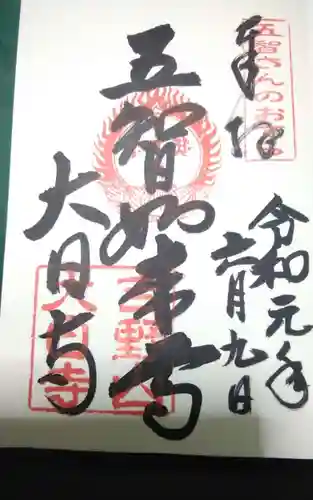 五智さんのお寺
奉拝
令和元年
六月九日
五智如来
大日寺
吉野山
大日寺